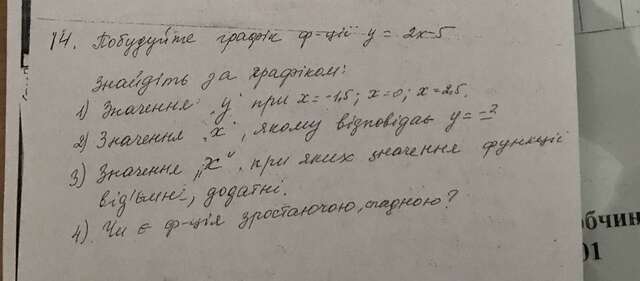 14. Побудуйте графік ф-ції y = 2x-5
Знайдіть за графіком:
1) Значення „y" при x = -1,5; x = 0; x = 2,5.
2) Значення „x", якому відповідає y = -3
3) Значення „x", при яких значення функції
від'ємні, додатні.
4). Чи є ф-ція зростаючою, спадною?
обчин
01